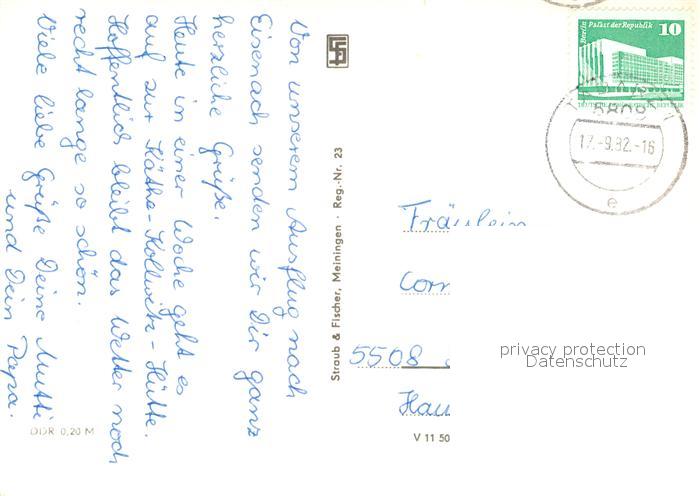 Von unserem Ausflug nach
Eisenach senden wir Dir ganz
herzliche Grüße.
Heute in einer Woche geht es
auf zur Käthe-Kollwitz-Hütte.
Hoffentlich bleibt das Wetter noch
recht lange so schön.
Viele liebe Grüße Deine Mutti
und Dein Papa.
DDR 0,20 M
Straub & Fischer, Meiningen · Reg.-Nr. 23
V 11 50
Berlin Palast der Republik 10
17.-9.82.-16
e
Fräulein
Corn
5508
Hau
privacy protection
Datenschutz